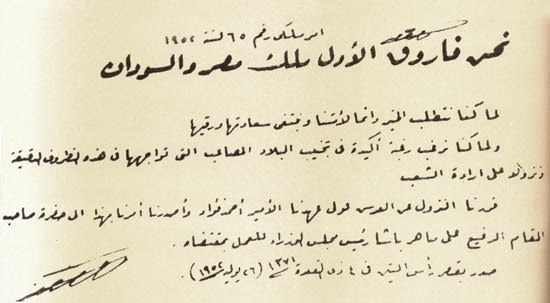 امر ملكى رقم ٦٥ لسنة ١٩٥٢
نحن فاروق الأول ملك مصر والسودان
لما كنا نتطلب الخير دائما لأمتنا ونبتغى سعادتها ورقيها
ولما كنا نرغب رغبة أكيدة فى تجنيب البلاد المصاعب التى تواجهها فى هذه الظروف الدقيقة
ونزولا على ارادة الشعب
قررنا النزول عن العرش لولى عهدنا الأمير أحمد فؤاد وأصدرنا أمرنا بهذا الى حضرة صاحب
المقام الرفيع على ماهر باشا رئيس مجلس الوزراء للعمل بمقتضاه
صدر بقصر رأس التين فى ٤ ذى القعدة ١٣٧١ (٢٦ يوليه ١٩٥٢)